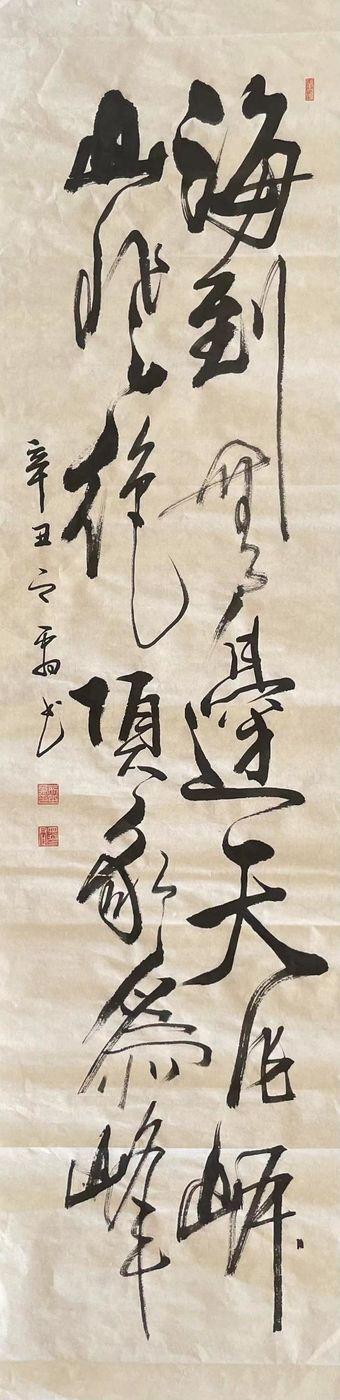 海到無邊天作岸
山登絕頂我為峰
辛丑之霜書